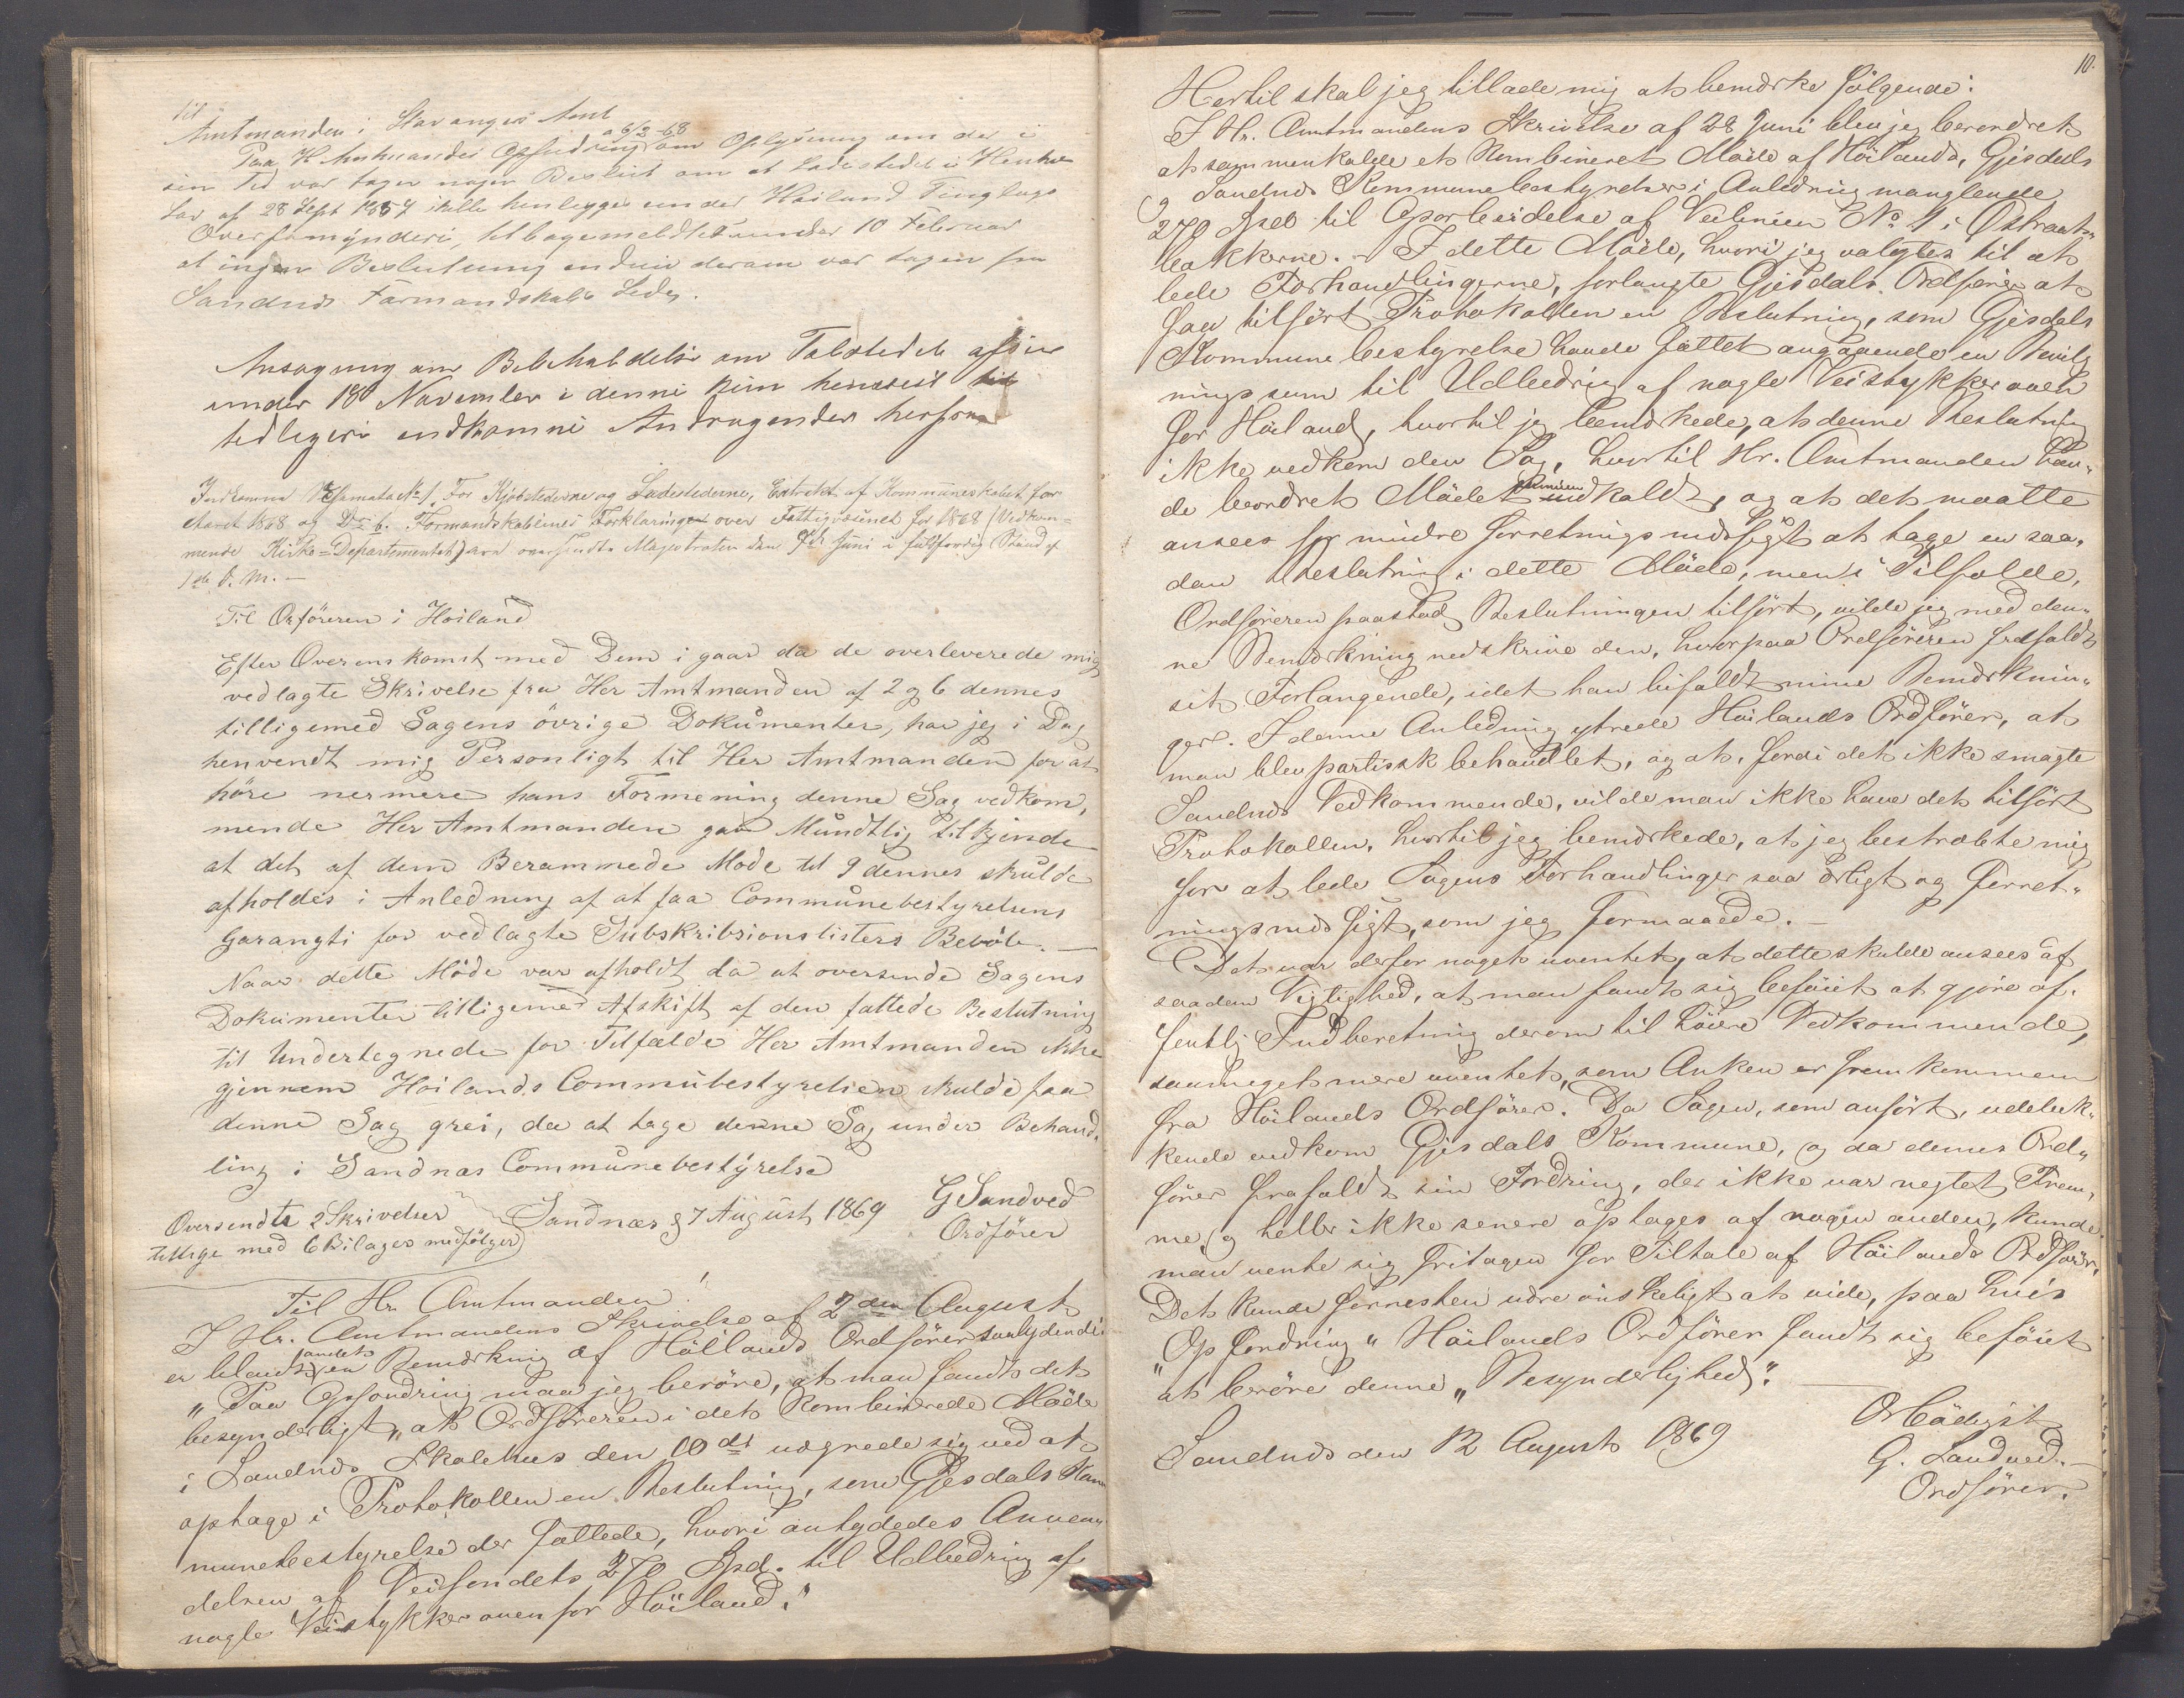 Til
Amtmanden i Stavanger Amt
Paa Hr Amtmandes Opfodring a 6/2-68 om Oplysning om der i
sin Tid var tagen nogen Beslut om at Ladestedet i Henhold
Lov af 28 Sept 1857 skulle henlegges under Høiland Tinglags
Overformÿnderi, tilbagemeldtes under 10 Februar
at ingen Beslutning endnu derom var tagen fra
Sandnæs Formandskabs Side.
Ansøgning om Bibeholdelse om Toldstedet afsen
under 18 November i denne
tidligere indkomne Andragender herfra
Indkomne Schemata No 1, For Kjøbstederne og Ladestederne, Extrakt af Kommuneskabet for
Aaret 1868 og Do 6. Formandskabernes Forklaringer over Fattigvæsenet for 1868 (Vedkom-
mende Kirke-Departementet) oversendte Magistraten den Juni i fuldfærdig Stand
d. M. —
Til Orføreren i Høiland
Efter Overenskomst med Dem i gaar da de overleverede mig
vedlagte Skrivelse fra Her Amtmanden af 2 og 6 dennes
tilligemed Sagens övrige Dokumenter, har jeg i Dag
henvendt mig Personligt til Her Amtmanden for at
höre nermere hans Formening denne Sag vedkom,
mende Her Amtmanden gav Mundtlig tilkjende
at det af dem Berammede Møde til 9 dennes skulde
afholdes i Anledning af at faa Communebestyrelsens
Garangti for vedlagte Subskribsionslisters Beløb. —
Naar dette Møde var afholdt da at oversende Sagens
Dokumenter tilligemed Afskift af den fattede Beslutning
til Undertegnede for Tilfælde Her Amtmanden ikke
gjennem Høilands Commubestyrelsen skulde faa
denne Sag grei, da at tage denne Sag under Behand,
ling i Sandnæs Communebestÿrelse
Oversendte 2 Skrivelser Sandnæs d 7 August 1869 G Sandved
tillige med 6 Bilager medfølger Ordfører
Til Hr. Amtmanden!
I Hr. Amtmandens Skrivelse af 2den August
er blandt andet en Bemærkning af Höilands Ordförer saalydende:
"Paa Opfordring maa jeg berøre, at man fandt det
besynderligt, at Ordföreren i det Kombinerede Møde
i Sandnæs Skolehus den 10de vægrede sig ved at
optage i Protokollen en Beslutning, som Gjesdals Kom
munebestyrelse der fattede, hvori antydedes Anven,
delsen af Veifondets 270 Spd. til Udbedring af
nogle Veistykker ovenfor Höiland."
10.
Hertil skal jeg tillade mig at bemærke følgende:
I Hr. Amtmandens Skrivelse af 28 Juni blev jeg beordret
at sammenkalde et Kombineret Møde af Höilands, Gjesdals
og Sandnæs Kommunebestyrelser i Anledning manglende
270 Spd til Oparbeidelse af Veilinien No 4 i Østraat-
bakkerne. – I dette Møde, hvori jeg valgtes til at
lede Forhandlingerne, forlangte Gjesdals Ordfører at
faa tilført Protokollen en Beslutning, som Gjesdals
Kommunebestyrelse havde fattet angaaende en Bevilg
ningssum til Udbedring af nogle Veistykker oven
for Höiland, hvortil jeg bemærkede, at denne Beslutning
ikke vedkom den Sag, hvortil Hr. Amtmanden hav,
de beordret Mödet sammenkaldt, og at det maatte
ansees for mindre forretningsmæssigt at tage en saa,
dan Beslutning i dette Möde, men i Tilfælde,
Ordföreren paastod Beslutningen tilfört, vilde jeg med den,
ne Bemærkning nedskrive den, hvorpaa Ordföreren frafaldt
sit Forlangende, idet han bifaldt mine Bemærknin,
ger. I denne Anledning ytrede Höilands Ordförer, at
man blev partisk behandlet, og at, fordi det ikke smagte
Sandnæs Vedkommende, vilde man ikke have det tilfört
Protokollen, hvortil jeg bemærkede, at jeg bestræbte mig
for at lede Sagens Forhandlinger saa ærligt og forret,
ningsmæssigt, som jeg formaaede. —
Det var derfor noget uventet, at dette skulde ansees af
saadan Vigtighed, at man fandt sig beföiet at gjøre of,
fentlig Indberetning derom til höiere Vedkommende,
saameget mere uventet, som Anken er fremkommen
fra Höilands Ordförer. Da Sagen, som anfört, udeluk,
kende vedkom Gjesdals Kommune, og da dennes Ord,
förer frafaldt sin Fordring, der ikke var negtet Frem,
me, og heller ikke senere optages af nogen anden, kunde
man vente sig fritagen for Tiltale af Höilands Ordförer.
Det kunde forresten være önskeligt at vide, paa hvis
"Opfordring" Höilands Ordförer fandt sig beföiet
at beröre denne "Besynderlighed". —
Sandnæs den 12 August 1869
Ærbødigst
G. Sandved. —
Ordförer.